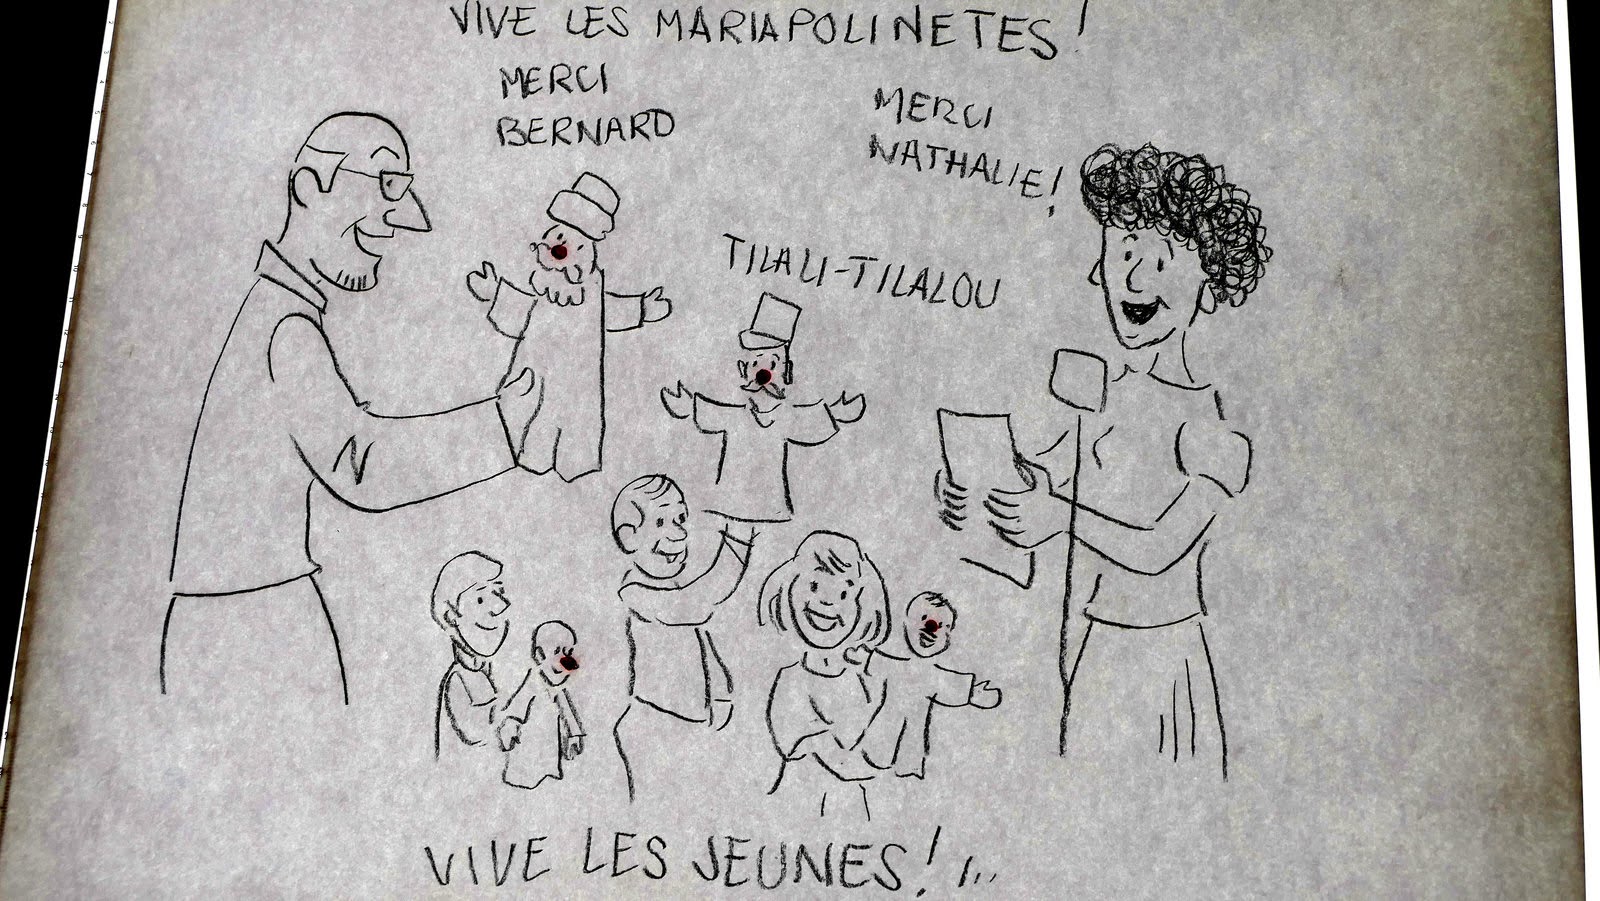 VIVE LES MARIAPOLINETES!
MERCI
BERNARD
MERCI
NATHALIE!
TILALI-TILALOU
VIVE LES JEUNES!